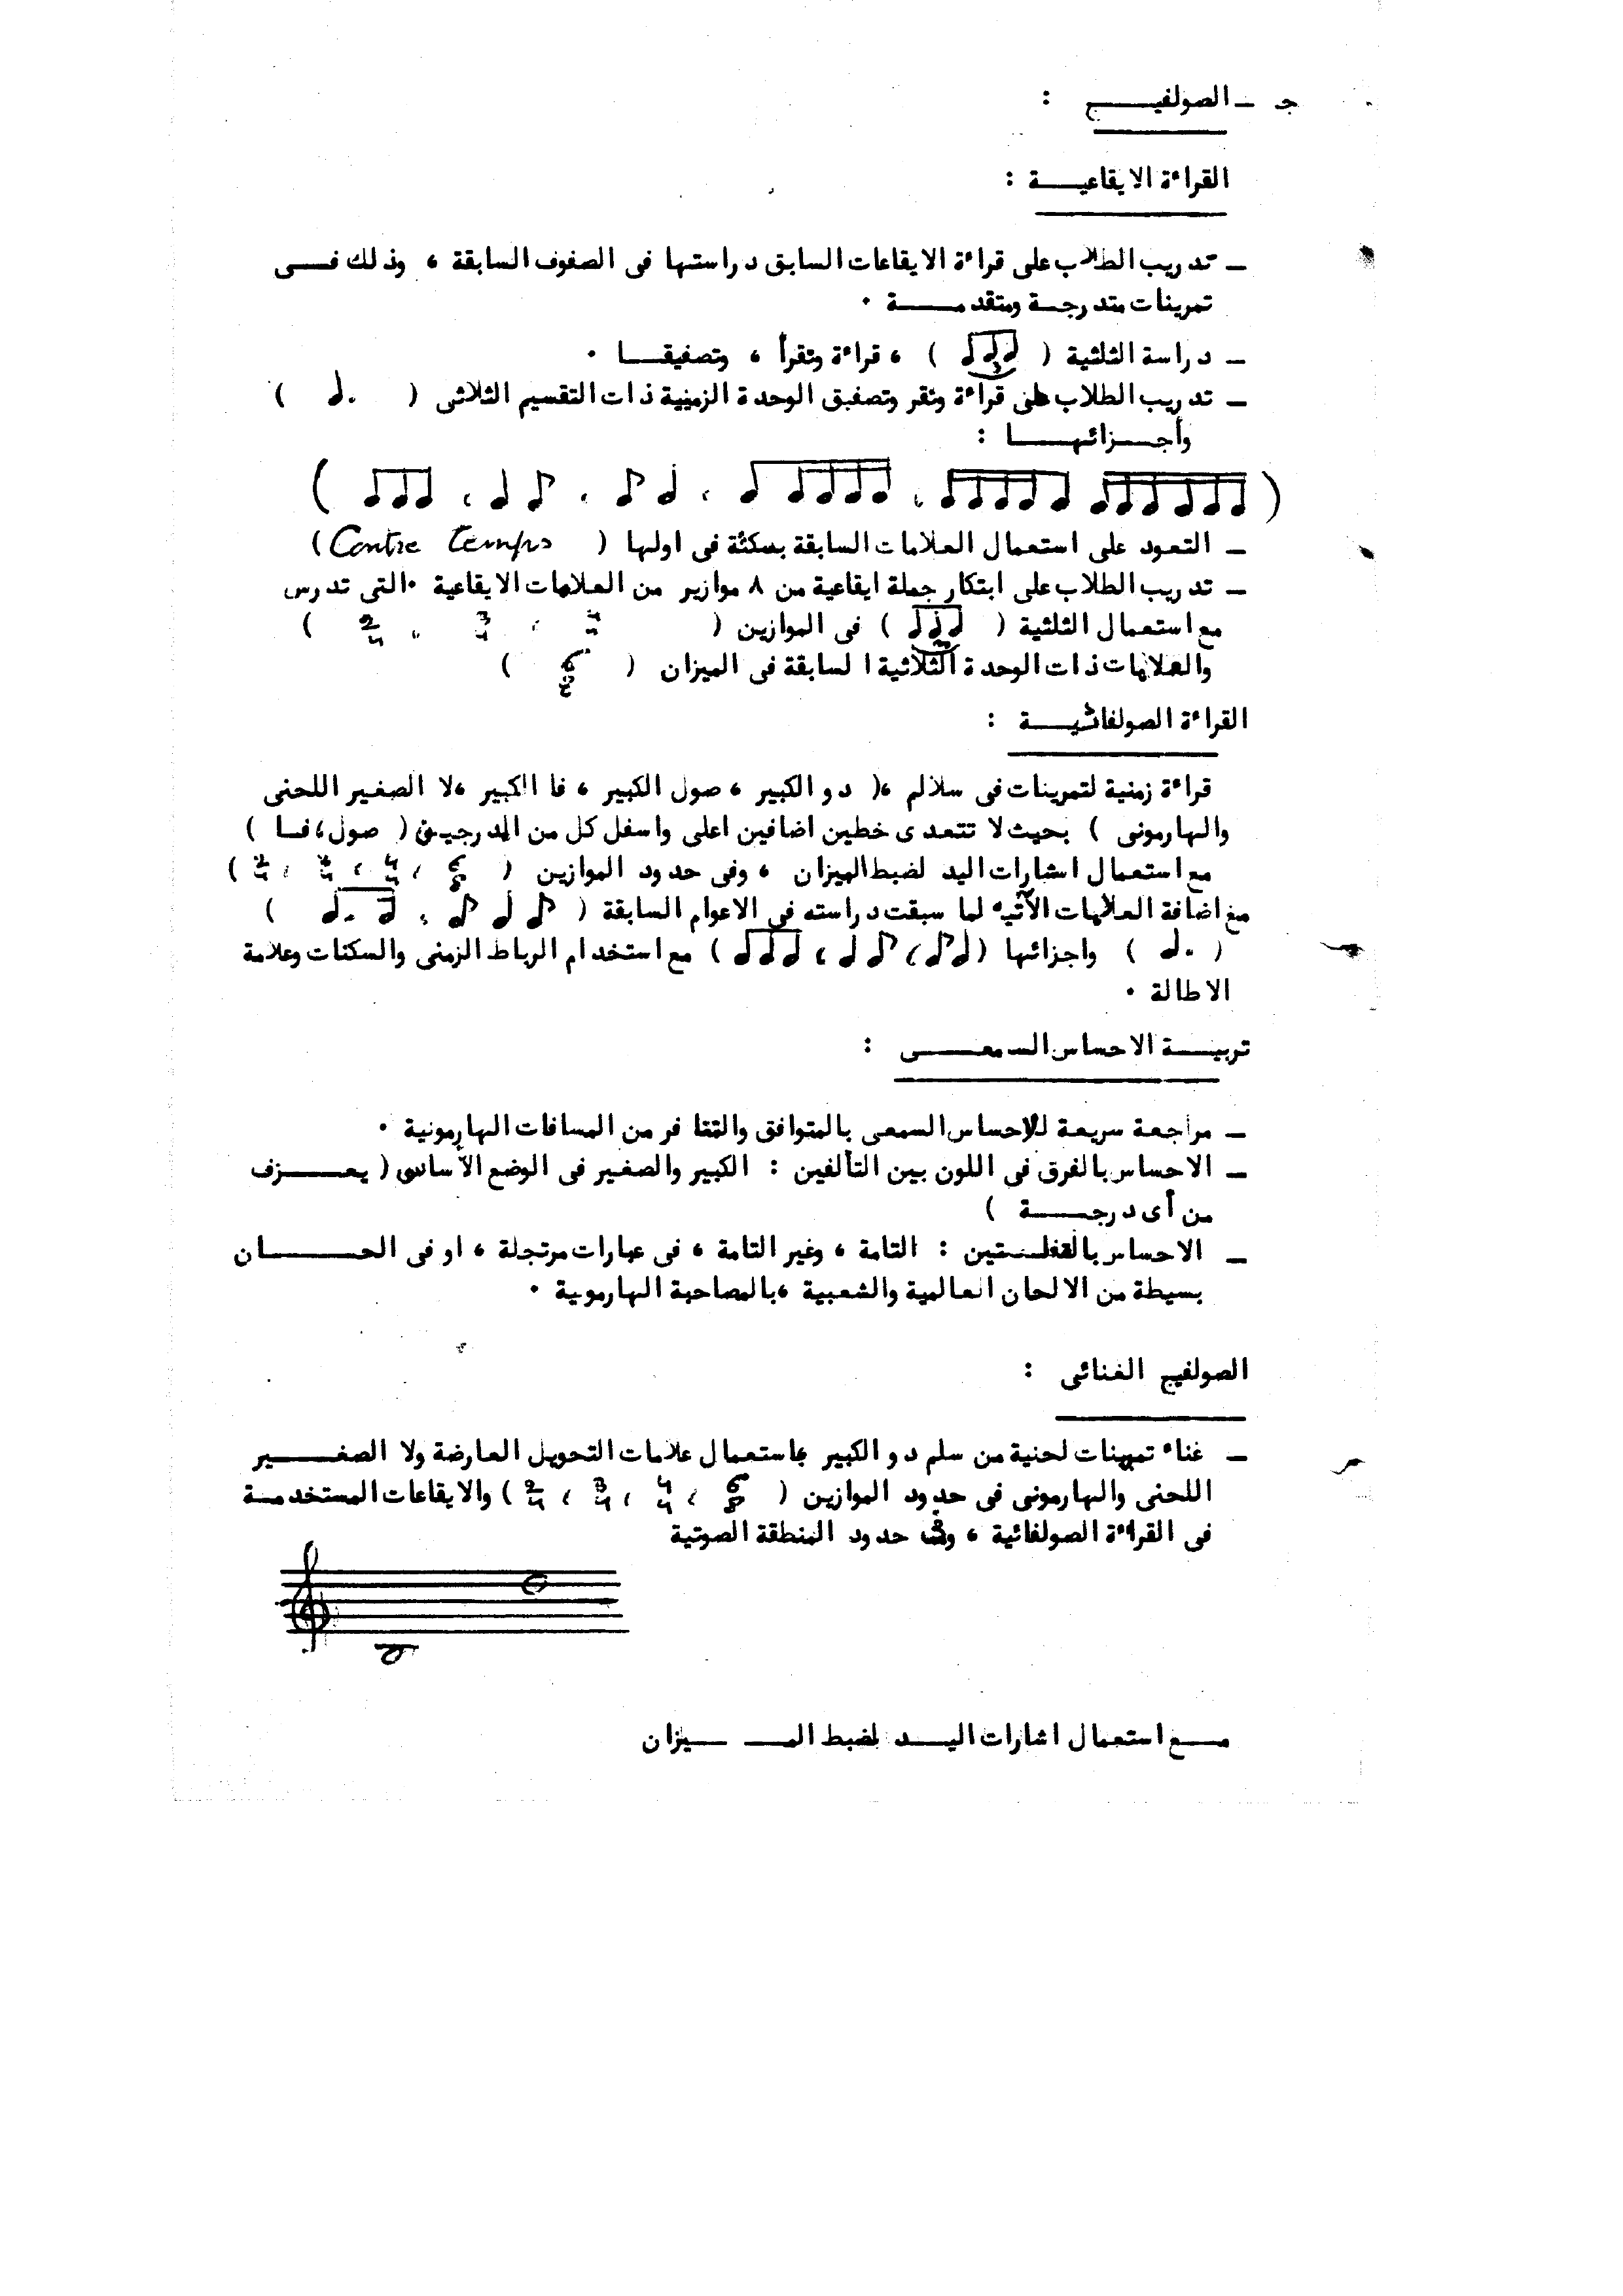 جـ ـ الصولفيـــج :
القراءة الايقاعيـــة :
ـ تدريب الطلاب على قراءة الايقاعات السابق دراستها فى الصفوف السابقة ، وذلك فـــى
تمرينات متدرجــة ومتقدمـــة .
ـ دراسة الثلثية ( ) ، قراءة ونقرأ ، وتصفيقـــا .
ـ تدريب الطلاب على قراءة ونقر وتصفيق الوحدة الزمنية ذات التقسيم الثلاثى ( )
وأجـــزائهـــا :
ـ التعود على استعمال العلامات السابقة بسكتة فى اولها ( Contre temps )
ـ تدريب الطلاب على ابتكار جملة ايقاعية من ٨ موازير من العلامات الايقاعية .التى تدرس
مع استعمال الثلثية ( ) فى الموازين ( 4/4 ، 3/4 ، 2/4 )
والعلامات ذات الوحدة الثلاثية السابقة فى الميزان ( 6/8 )
القراءة الصولفائيـــة :
قراءة زمنية لتمرينات فى سلالم ،( دو الكبير ، صول الكبير ، فا الكبير ،لا الصغير اللحنى
والهارمونى ) بحيث لا تتعدى خطين اضافين اعلى واسفل كل من المدرجين ( صول ، فــا )
مع استعمال اشارات اليد لضبط الميزان ، وفى حدود الموازين ( 6/8 ، 4/4 ، 3/4 ، 2/4 )
مع اضافة العلامات الآتيه لما سبقت دراسته فى الاعوام السابقة ( )
( ) واجزائها ( ) مع استخدام الرباط الزمنى والسكتات وعلامة
الاطالة .
تربيـــة الاحساس السمعـــى :
ـ مراجعة سريعة للاحساس السمعى بالمتوافق والمتنافر من المسافات الهارمونية .
ـ الاحساس بالفرق فى اللون بين التألفين : الكبير والصغير فى الوضع الأساسى ( يعـــزف
من أى درجـــة )
ـ الاحساس بالقفلــتين : التامة ، وغير التامة ، فى عبارات مرتجلة ، او فى الحـــان
بسيطة من الالحان العالمية والشعبية ،بالمصاحبة الهارمونية .
الصولفيج الغنائى :
ـ غناء تمرينات لحنية من سلم دو الكبير باستعمال علامات التحويل العارضة ولا الصغـــير
اللحنى والهارمونى فى حدود الموازين ( 6/8 ، 4/4 ، 3/4 ، 2/4 ) والايقاعات المستخدمــة
فى القراءة الصولفائية ، وفى حدود المنطقة الصوتية
مــع استعمال اشارات اليــد لضبط المــ ــيزان